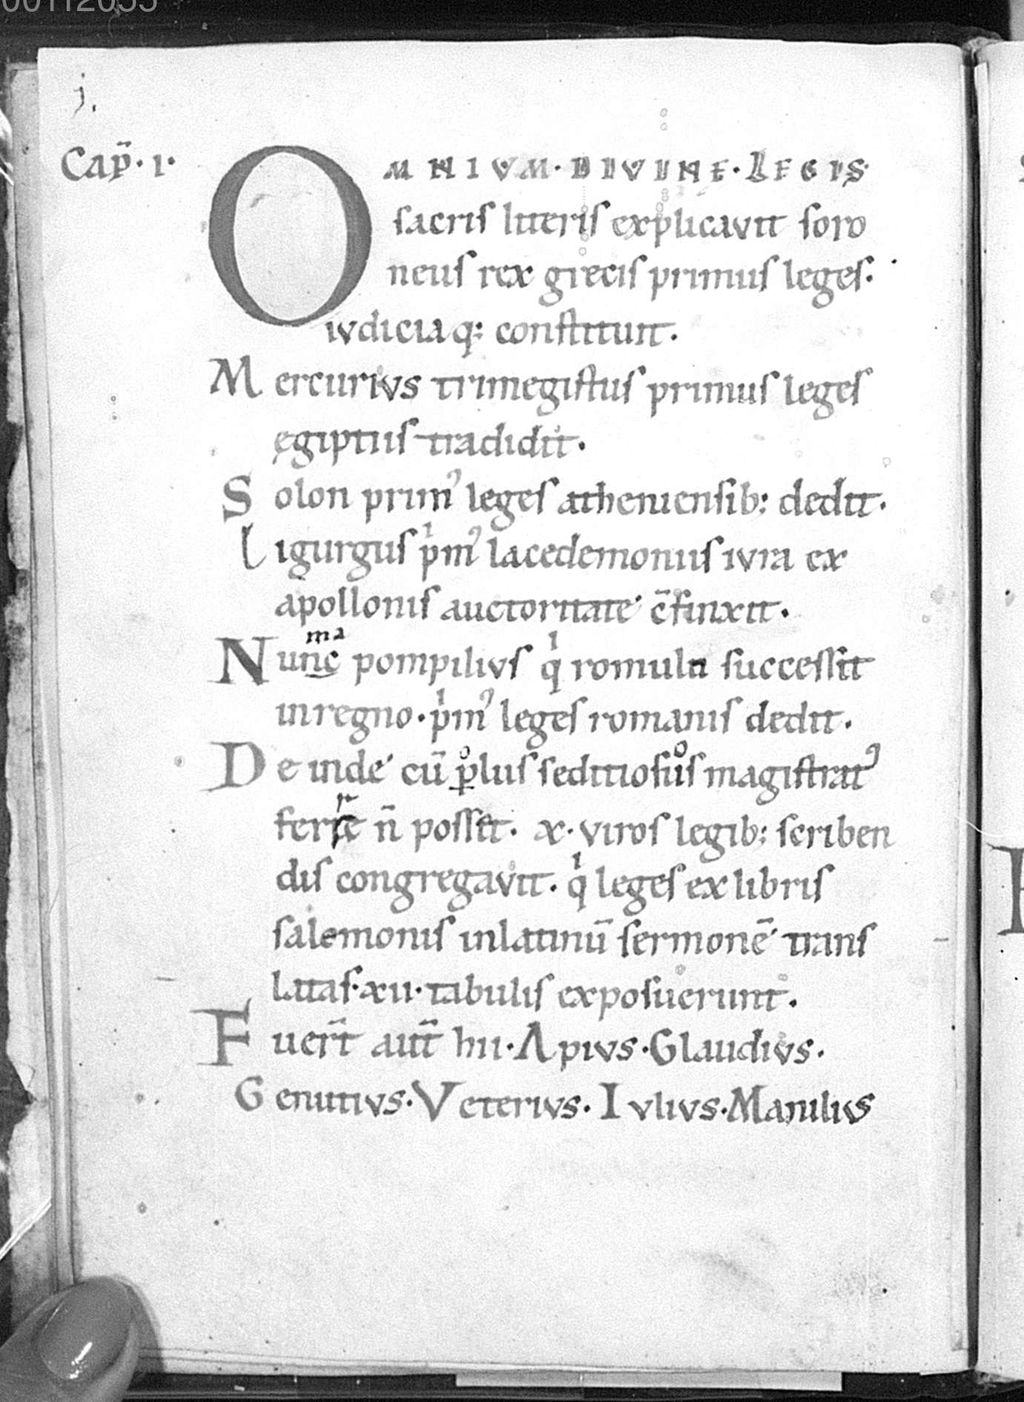 j.
Cap̄·1·
OMNIVM·DIVINE·LEGIS
sacris litteris explicavit foro
neus rex grecis primus leges·
iudicia q: constituit·
Mercurius trimegistus primus leges
egiptiis tradidit·
Solon prim᾽ leges atheniensib: dedit·
Ligurgus pͥm᾽ lacedemoniis iura ex
apollonis auctoritate c̄finxit·
ma
Nunc pompilius qͥ romulu successit
in regno·pͥm᾽ leges romanis dedit·
De inde cū pͦlus seditiosuͦs magistrat᾽
ferre n̄ posset· x·viros legib: scriben
dis congregavit· qͥ leges ex libris
salemonis in latinū sermonē trans
latas·xii·tabulis exposuerunt·
Fuer̄t aut̄ hii·Apius·Glaudius·
Genutius·Veterius·Iulius·Manilius